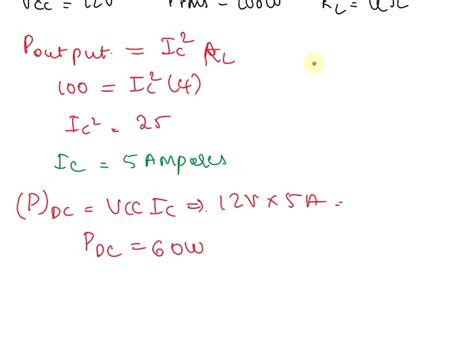 Vcc = 12V = 100W RL = 4Ω
Poutput = Ic² RL
100 = Ic² (4)
Ic² = 25
Ic = 5 Amperes
(P)DC = VCC IC ⇒ 12V × 5A =
PDC = 60W